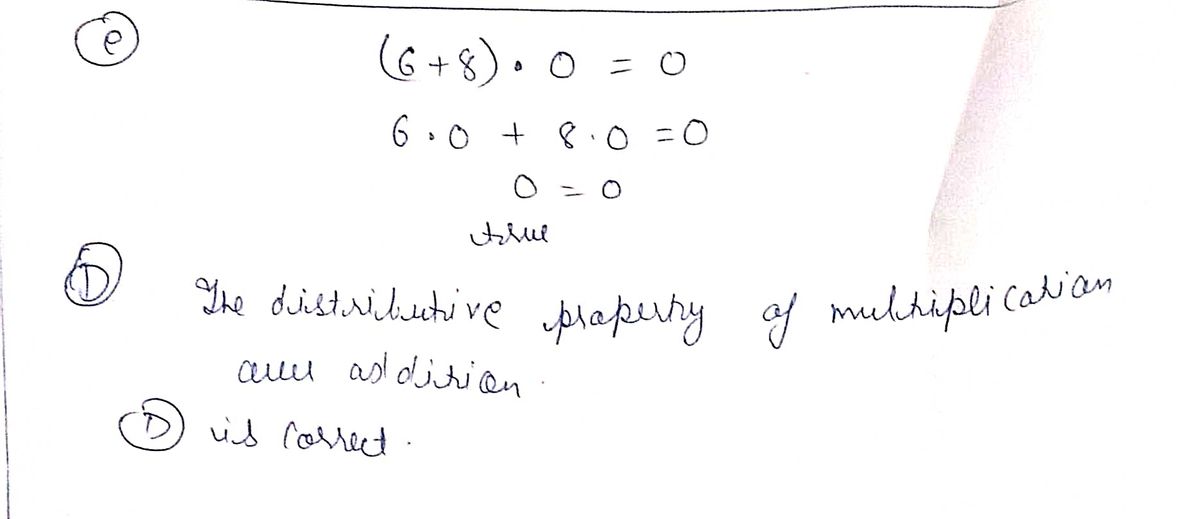 (e)
(6+8) · 0 = 0
6 · 0 + 8 · 0 = 0
0 = 0
true
(D) The distributive property of multiplication
over addition.
(D) is correct.